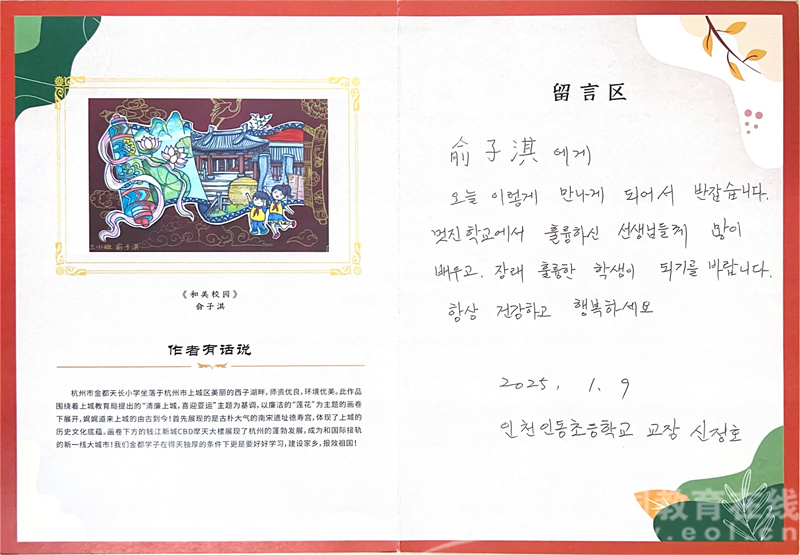 三(1)班 俞子淇
《和美校园》
俞子淇
作者有话说
杭州市金都天长小学坐落于杭州市上城区美丽的西子湖畔，师资优良，环境优美。此作品
围绕着上城教育局提出的“清廉上城，喜迎亚运”主题为基调，以廉洁的“莲花”为主题的画卷
下展开，娓娓道来上城的由古到今！首先展现的是古朴大气的南宋遗址德寿宫，体现了上城的
历史文化底蕴。画卷下方的钱江新城CBD摩天大楼展现了杭州的蓬勃发展，成为和国际接轨
的新一线大城市！我们金都学子在得天独厚的条件下更是要好好学习，建设家乡，报效祖国！
留言区
俞子淇 에게
오늘 이렇게 만나게 되어서 반갑습니다.
멋진학교에서 훌륭하신 선생님들께 많이
배우고. 장래 훌륭한 학생이 되기를 바랍니다.
항상 건강하고 행복하세요
2025. 1. 9
인천인동초등학교 교장 신정호
教育在线
.eol.cn